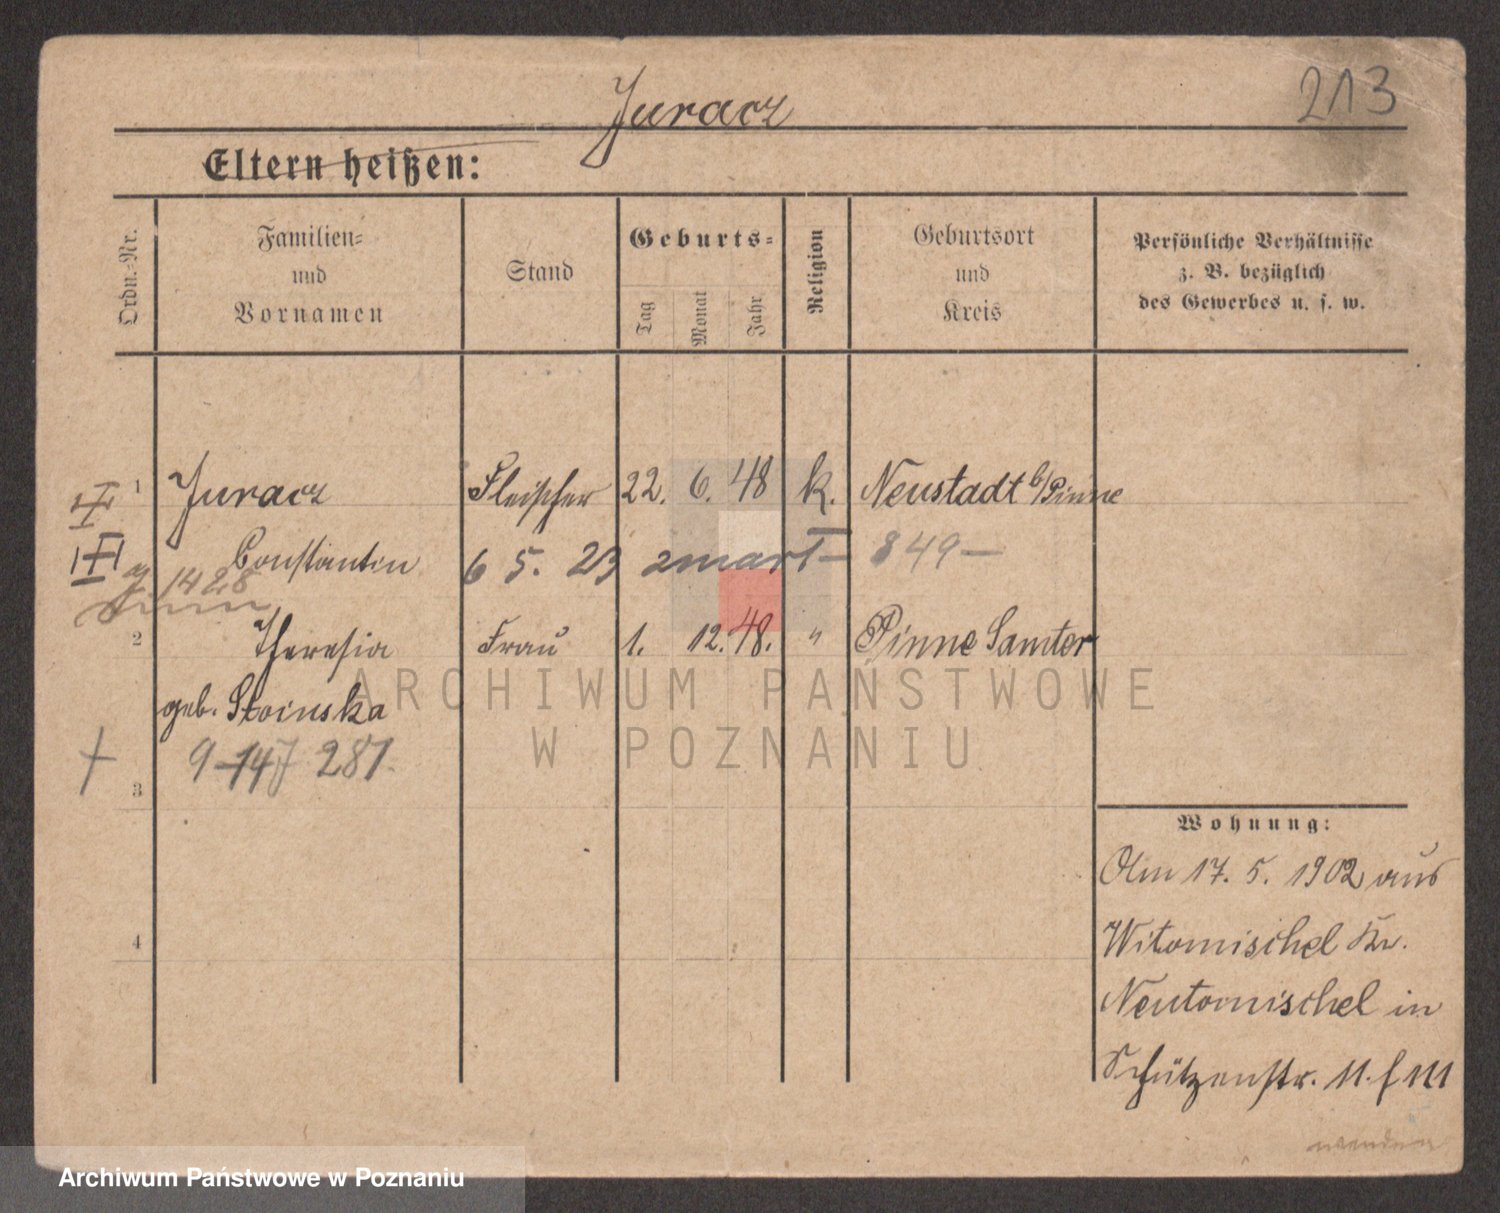 213
Juracz
Eltern heißen:
Ordn.-Nr.
Familien-
und
Vornamen
Stand
Geburts-
Tag
Monat
Jahr
Religion
Geburtsort
und
Kreis
Persönliche Verhältnisse
z. B. bezüglich
des Gewerbes u. s. w.
1 Juracz Fleischer 22. 6. 48 k. Neustadt b/Pinne
Constantin
6 5. 23 zmarł — 849 —
1428
2 Theresia Frau 1. 12. 48. " Pinne Samter
geb. Stoinska
† 9 147 281.
3
4
Wohnung:
Am 17. 5. 1902 aus
Witomischel Kr.
Neutomischel in
Schützenstr. 11. f III
wenden
ARCHIWUM PAŃSTWOWE
W POZNANIU
Archiwum Państwowe w Poznaniu